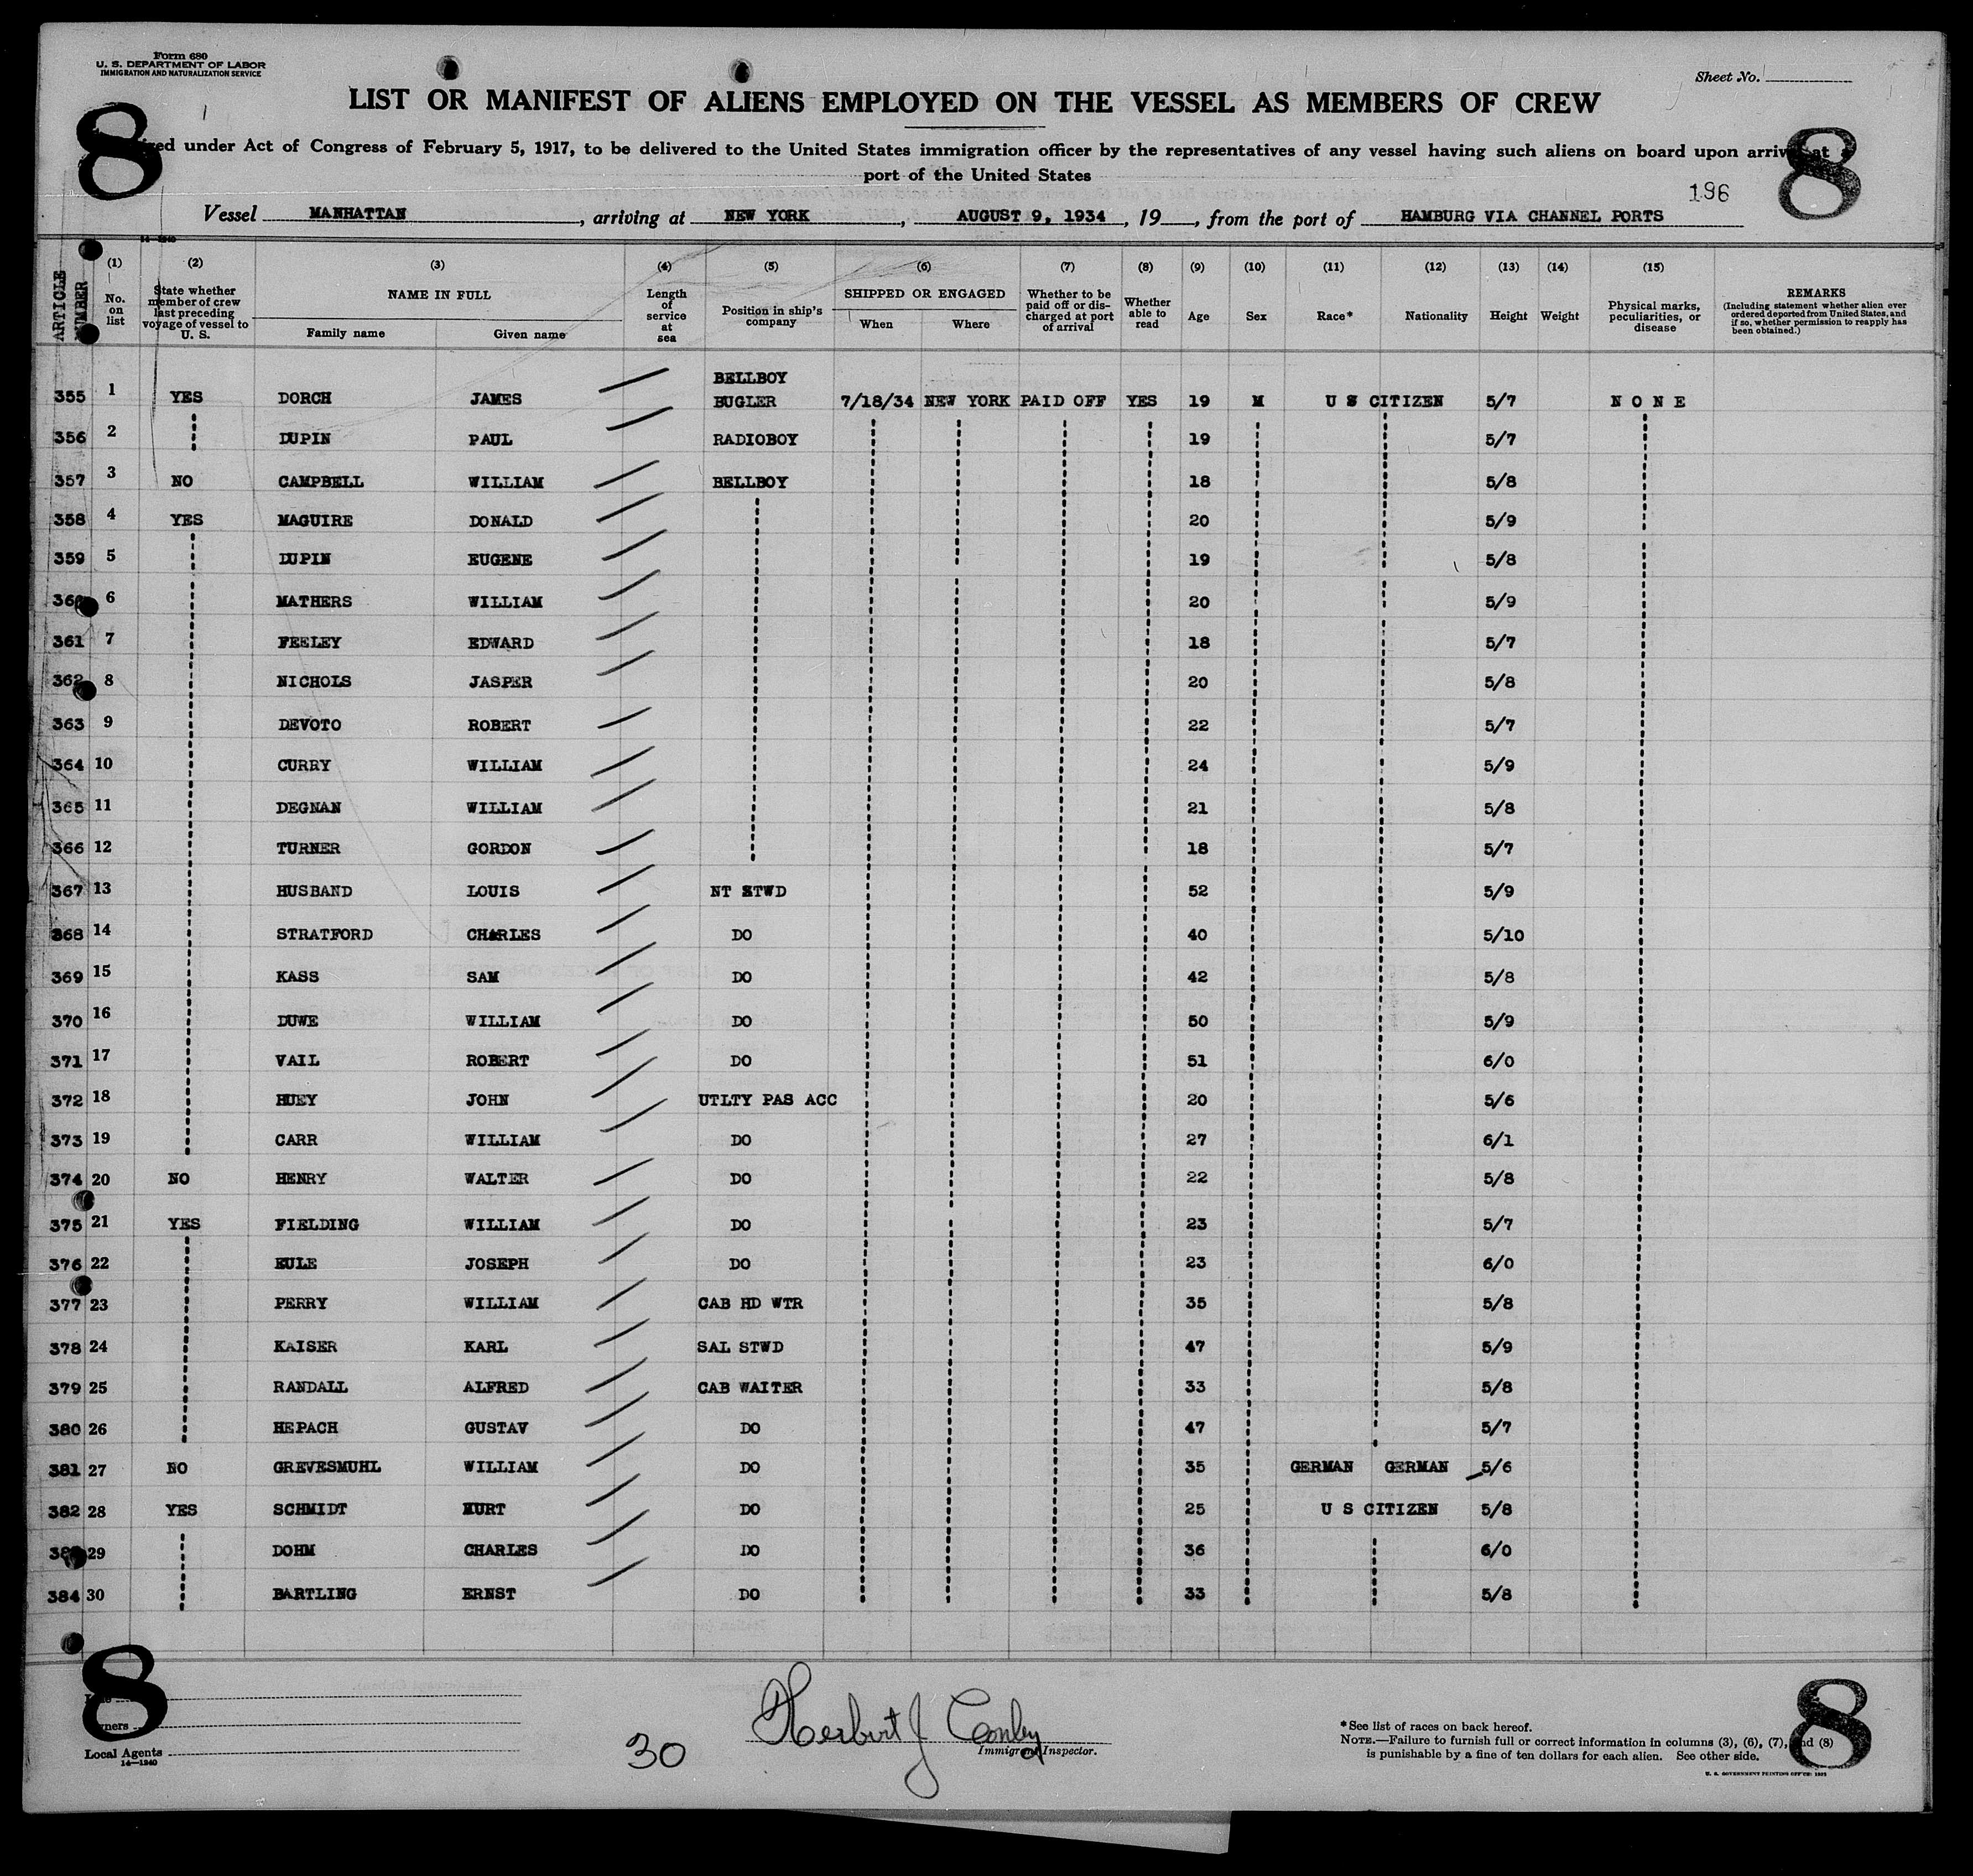 Form 680
U. S. DEPARTMENT OF LABOR
IMMIGRATION AND NATURALIZATION SERVICE
Sheet No.
LIST OR MANIFEST OF ALIENS EMPLOYED ON THE VESSEL AS MEMBERS OF CREW
8 under Act of Congress of February 5, 1917, to be delivered to the United States immigration officer by the representatives of any vessel having such aliens on board upon arrival at 8
port of the United States
196
Vessel MANHATTAN, arriving at NEW YORK, AUGUST 9, 1934, 19, from the port of HAMBURG VIA CHANNEL PORTS
14—1240
ARTICLE NUMBER
(1) No. on list
(2) State whether member of crew last preceding voyage of vessel to U. S.
(3) NAME IN FULL Family name Given name
(4) Length of service at sea
(5) Position in ship's company
(6) SHIPPED OR ENGAGED When Where
(7) Whether to be paid off or discharged at port of arrival
(8) Whether able to read
(9) Age
(10) Sex
(11) Race*
(12) Nationality
(13) Height
(14) Weight
(15) Physical marks, peculiarities, or disease
REMARKS (Including statement whether alien ever ordered deported from United States, and if so, whether permission to reapply has been obtained.)
355 1 YES DORCH JAMES BELLBOY BUGLER 7/18/34 NEW YORK PAID OFF YES 19 M U S CITIZEN 5/7 N O N E
356 2 DUPIN PAUL RADIOBOY 19 5/7
357 3 NO CAMPBELL WILLIAM BELLBOY 18 5/8
358 4 YES MAGUIRE DONALD 20 5/9
359 5 DUPIN EUGENE 19 5/8
360 6 MATHERS WILLIAM 20 5/9
361 7 FEELEY EDWARD 18 5/7
362 8 NICHOLS JASPER 20 5/8
363 9 DEVOTO ROBERT 22 5/7
364 10 CURRY WILLIAM 24 5/9
365 11 DEGNAN WILLIAM 21 5/8
366 12 TURNER GORDON 18 5/7
367 13 HUSBAND LOUIS NT STWD 52 5/9
368 14 STRATFORD CHARLES DO 40 5/10
369 15 KASS SAM DO 42 5/8
370 16 DUWE WILLIAM DO 50 5/9
371 17 VAIL ROBERT DO 51 6/0
372 18 HUEY JOHN UTLTY PAS ACC 20 5/6
373 19 CARR WILLIAM DO 27 6/1
374 20 NO HENRY WALTER DO 22 5/8
375 21 YES FIELDING WILLIAM DO 23 5/7
376 22 EULE JOSEPH DO 23 6/0
377 23 PERRY WILLIAM CAB HD WTR 35 5/8
378 24 KAISER KARL SAL STWD 47 5/9
379 25 RANDALL ALFRED CAB WAITER 33 5/8
380 26 HEPACH GUSTAV DO 47 5/7
381 27 NO GREVESMUHL WILLIAM DO 35 GERMAN GERMAN 5/6
382 28 YES SCHMIDT KURT DO 25 U S CITIZEN 5/8
29 DOHM CHARLES DO 36 6/0
384 30 BARTLING ERNST DO 33 5/8
8
Local Agents
14—1240
30
Herbert J Conley
Immigrant Inspector.
* See list of races on back hereof.
NOTE.—Failure to furnish full or correct information in columns (3), (6), (7), and (8)
is punishable by a fine of ten dollars for each alien. See other side.
8